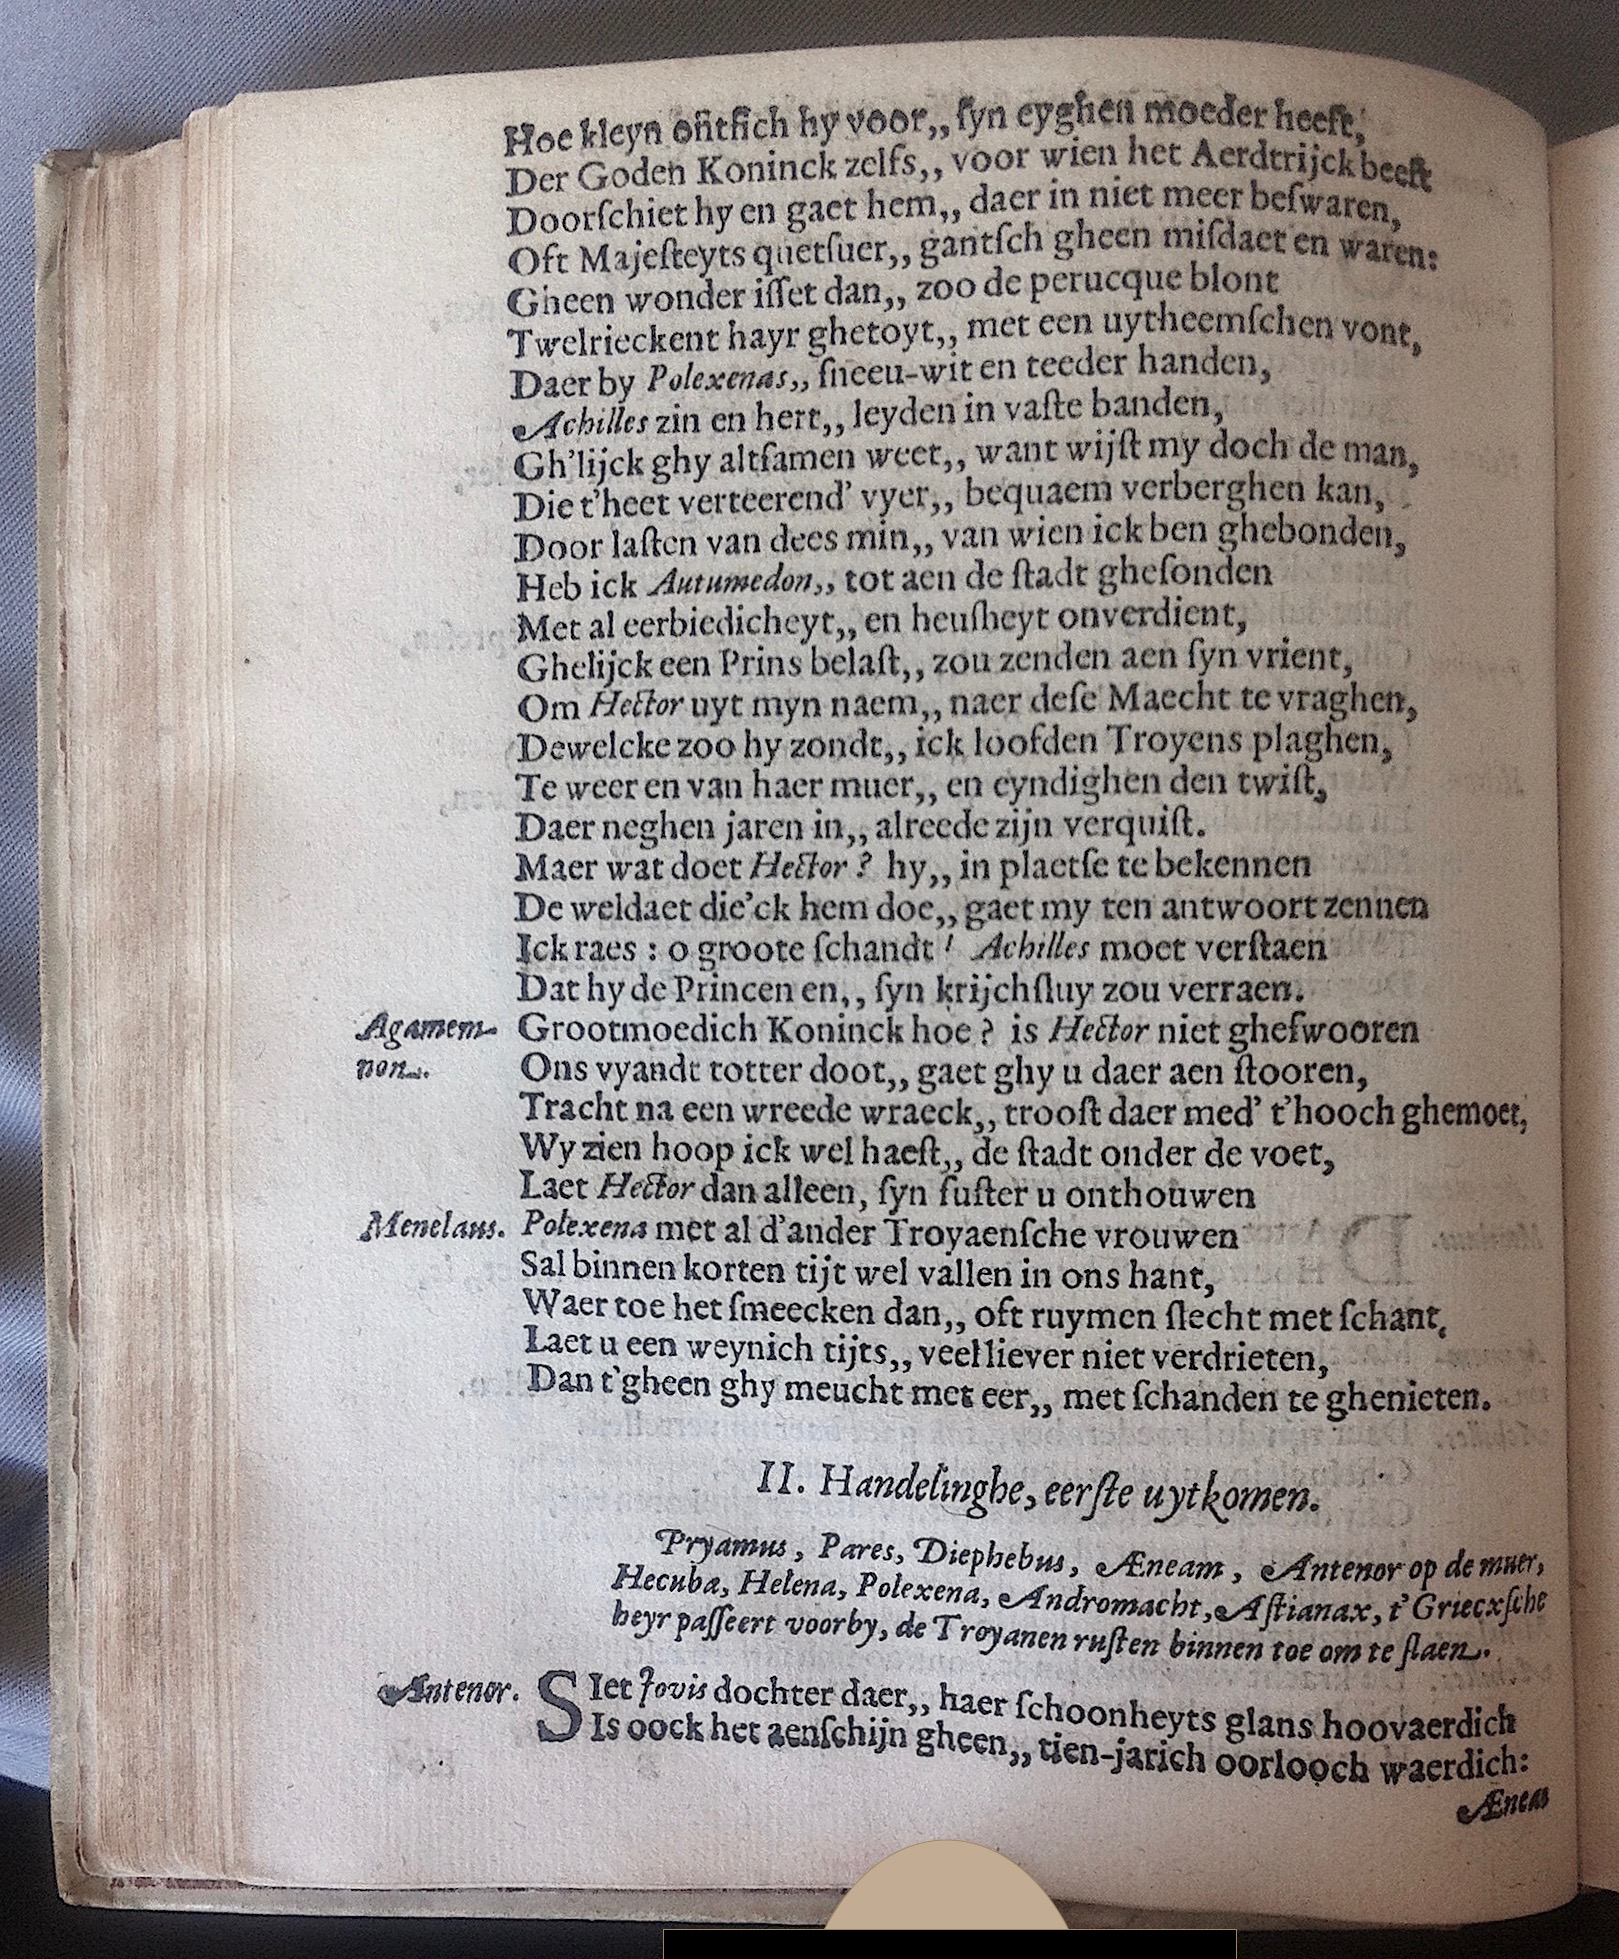 Hoe kleyn ontſich hy voor,, ſyn eyghen moeder heeft,
Der Goden Koninck zelfs,, voor wien het Aerdtrijck beeft
Doorſchiet hy en gaet hem,, daer in niet meer beſwaren,
Oft Majeſteyts quetſuer,, gantſch gheen miſdaet en waren:
Gheen wonder iſſet dan,, zoo de perucque blont
Twelrieckent hayr ghetoyt,, met een uytheemſchen vont,
Daer by Polexenas,, ſneeu-wit en teeder handen,
Achilles zin en hert,, leyden in vaſte banden,
Gh'lijck ghy altſamen weet,, want wijſt my doch de man,
Die t'heet verteerend' vyer,, bequaem verberghen kan,
Door laſten van dees min,, van wien ick ben ghebonden,
Heb ick Autumedon,, tot aen de ſtadt gheſonden
Met al eerbiedicheyt,, en heuſheyt onverdient,
Ghelijck een Prins belaſt,, zou zenden aen ſyn vrient,
Om Hector uyt myn naem,, naer deſe Maecht te vraghen,
Dewelcke zoo hy zondt,, ick loofden Troyens plaghen,
Te weer en van haer muer,, en eyndighen den twiſt,
Daer neghen jaren in,, alreede zijn verquiſt.
Maer wat doet Hector? hy,, in plaetſe te bekennen
De weldaet die'ck hem doe,, gaet my ten antwoort zennen
Ick raes : o groote ſchandt! Achilles moet verſtaen
Dat hy de Princen en,, ſyn krijchſluy zou verraen.
Agamem- Grootmoedich Koninck hoe? is Hector niet gheſwooren
non. Ons vyandt totter doot,, gaet ghy u daer aen ſtooren,
Tracht na een wreede wraeck,, trooſt daer med' t'hooch ghemoet,
Wy zien hoop ick wel haeſt,, de ſtadt onder de voet,
Laet Hector dan alleen, ſyn ſuſter u onthouwen
Menelaus. Polexena met al d'ander Troyaenſche vrouwen
Sal binnen korten tijt wel vallen in ons hant,
Waer toe het ſmeecken dan,, oft ruymen ſlecht met ſchant,
Laet u een weynich tijts,, veel liever niet verdrieten,
Dan t'gheen ghy meucht met eer,, met ſchanden te ghenieten.
II. Handelinghe, eerſte uytkomen.
Pryamus, Pares, Diephebus, Æneam, Antenor op de muer,
Hecuba, Helena, Polexena, Andromacht, Aſtianax, t'Griecxſche
heyr paſſeert voorby, de Troyanen ruſten binnen toe om te ſlaen.
Antenor. SIet Jovis dochter daer,, haer ſchoonheyts glans hoovaerdich
Is oock het aenſchijn gheen,, tien-jarich oorlooch waerdich:
Æneas